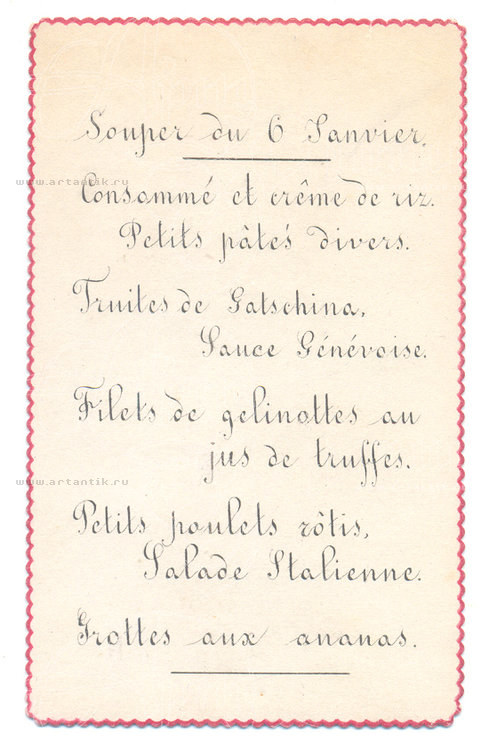 Souper du 6 Janvier.
www.artantik.ru
Consommé et crême de riz.
Petits pâtés divers.
Truites de Gatschina,
Sauce Génévoise.
Filets de gelinottes au
jus de truffes.
www.artantik.ru
Petits poulets rôtis,
Salade Italienne.
Grottes aux ananas.